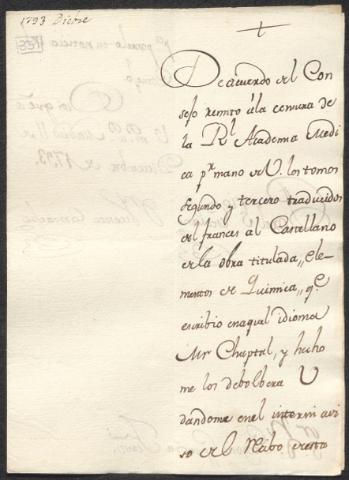 1793 Dicbre
De acuerdo del Con
sejo remito á la censura de
la Rl. Academia Medi
ca pr. mano de V. los tomos
segundo y tercero traducidos
del frances al Castellano
de la obra titulada,, ele-
mentos de Quimica,, qe.
escribio en aquel idioma
Mr. Chaptal, y hecho
me los debolbera V
dandome en el interin avi
so del Recibo de esta